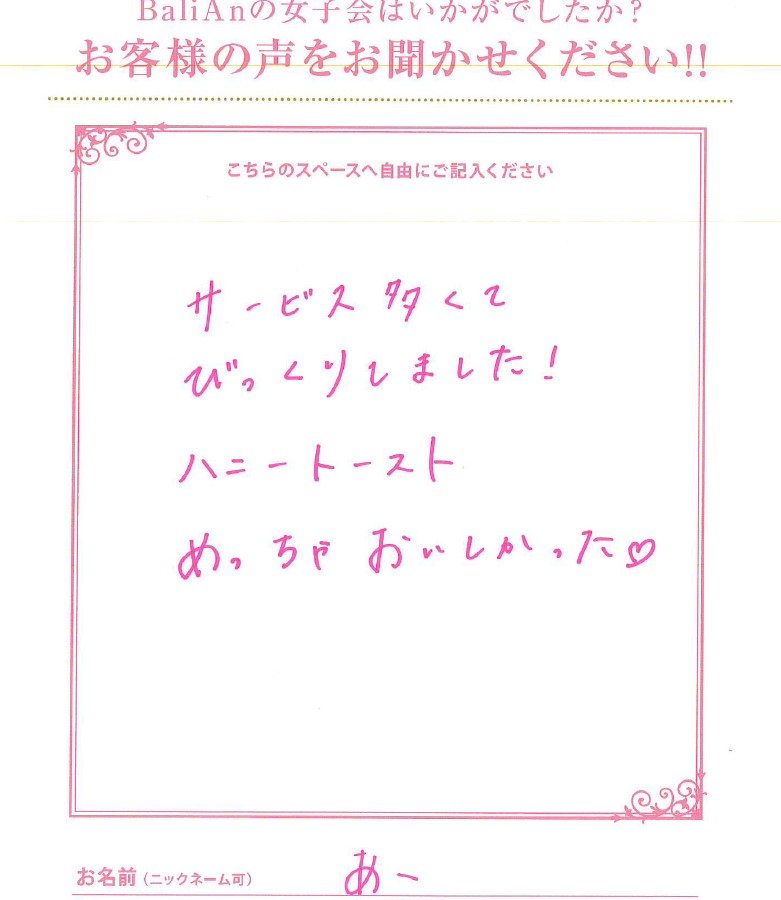 BaliAnの女子会はいかがでしたか？
お客様の声をお聞かせください!!
こちらのスペースへ自由にご記入ください
サービス多くて
びっくりしました！
ハニートースト
めっちゃおいしかった♡
お名前（ニックネーム可） あー